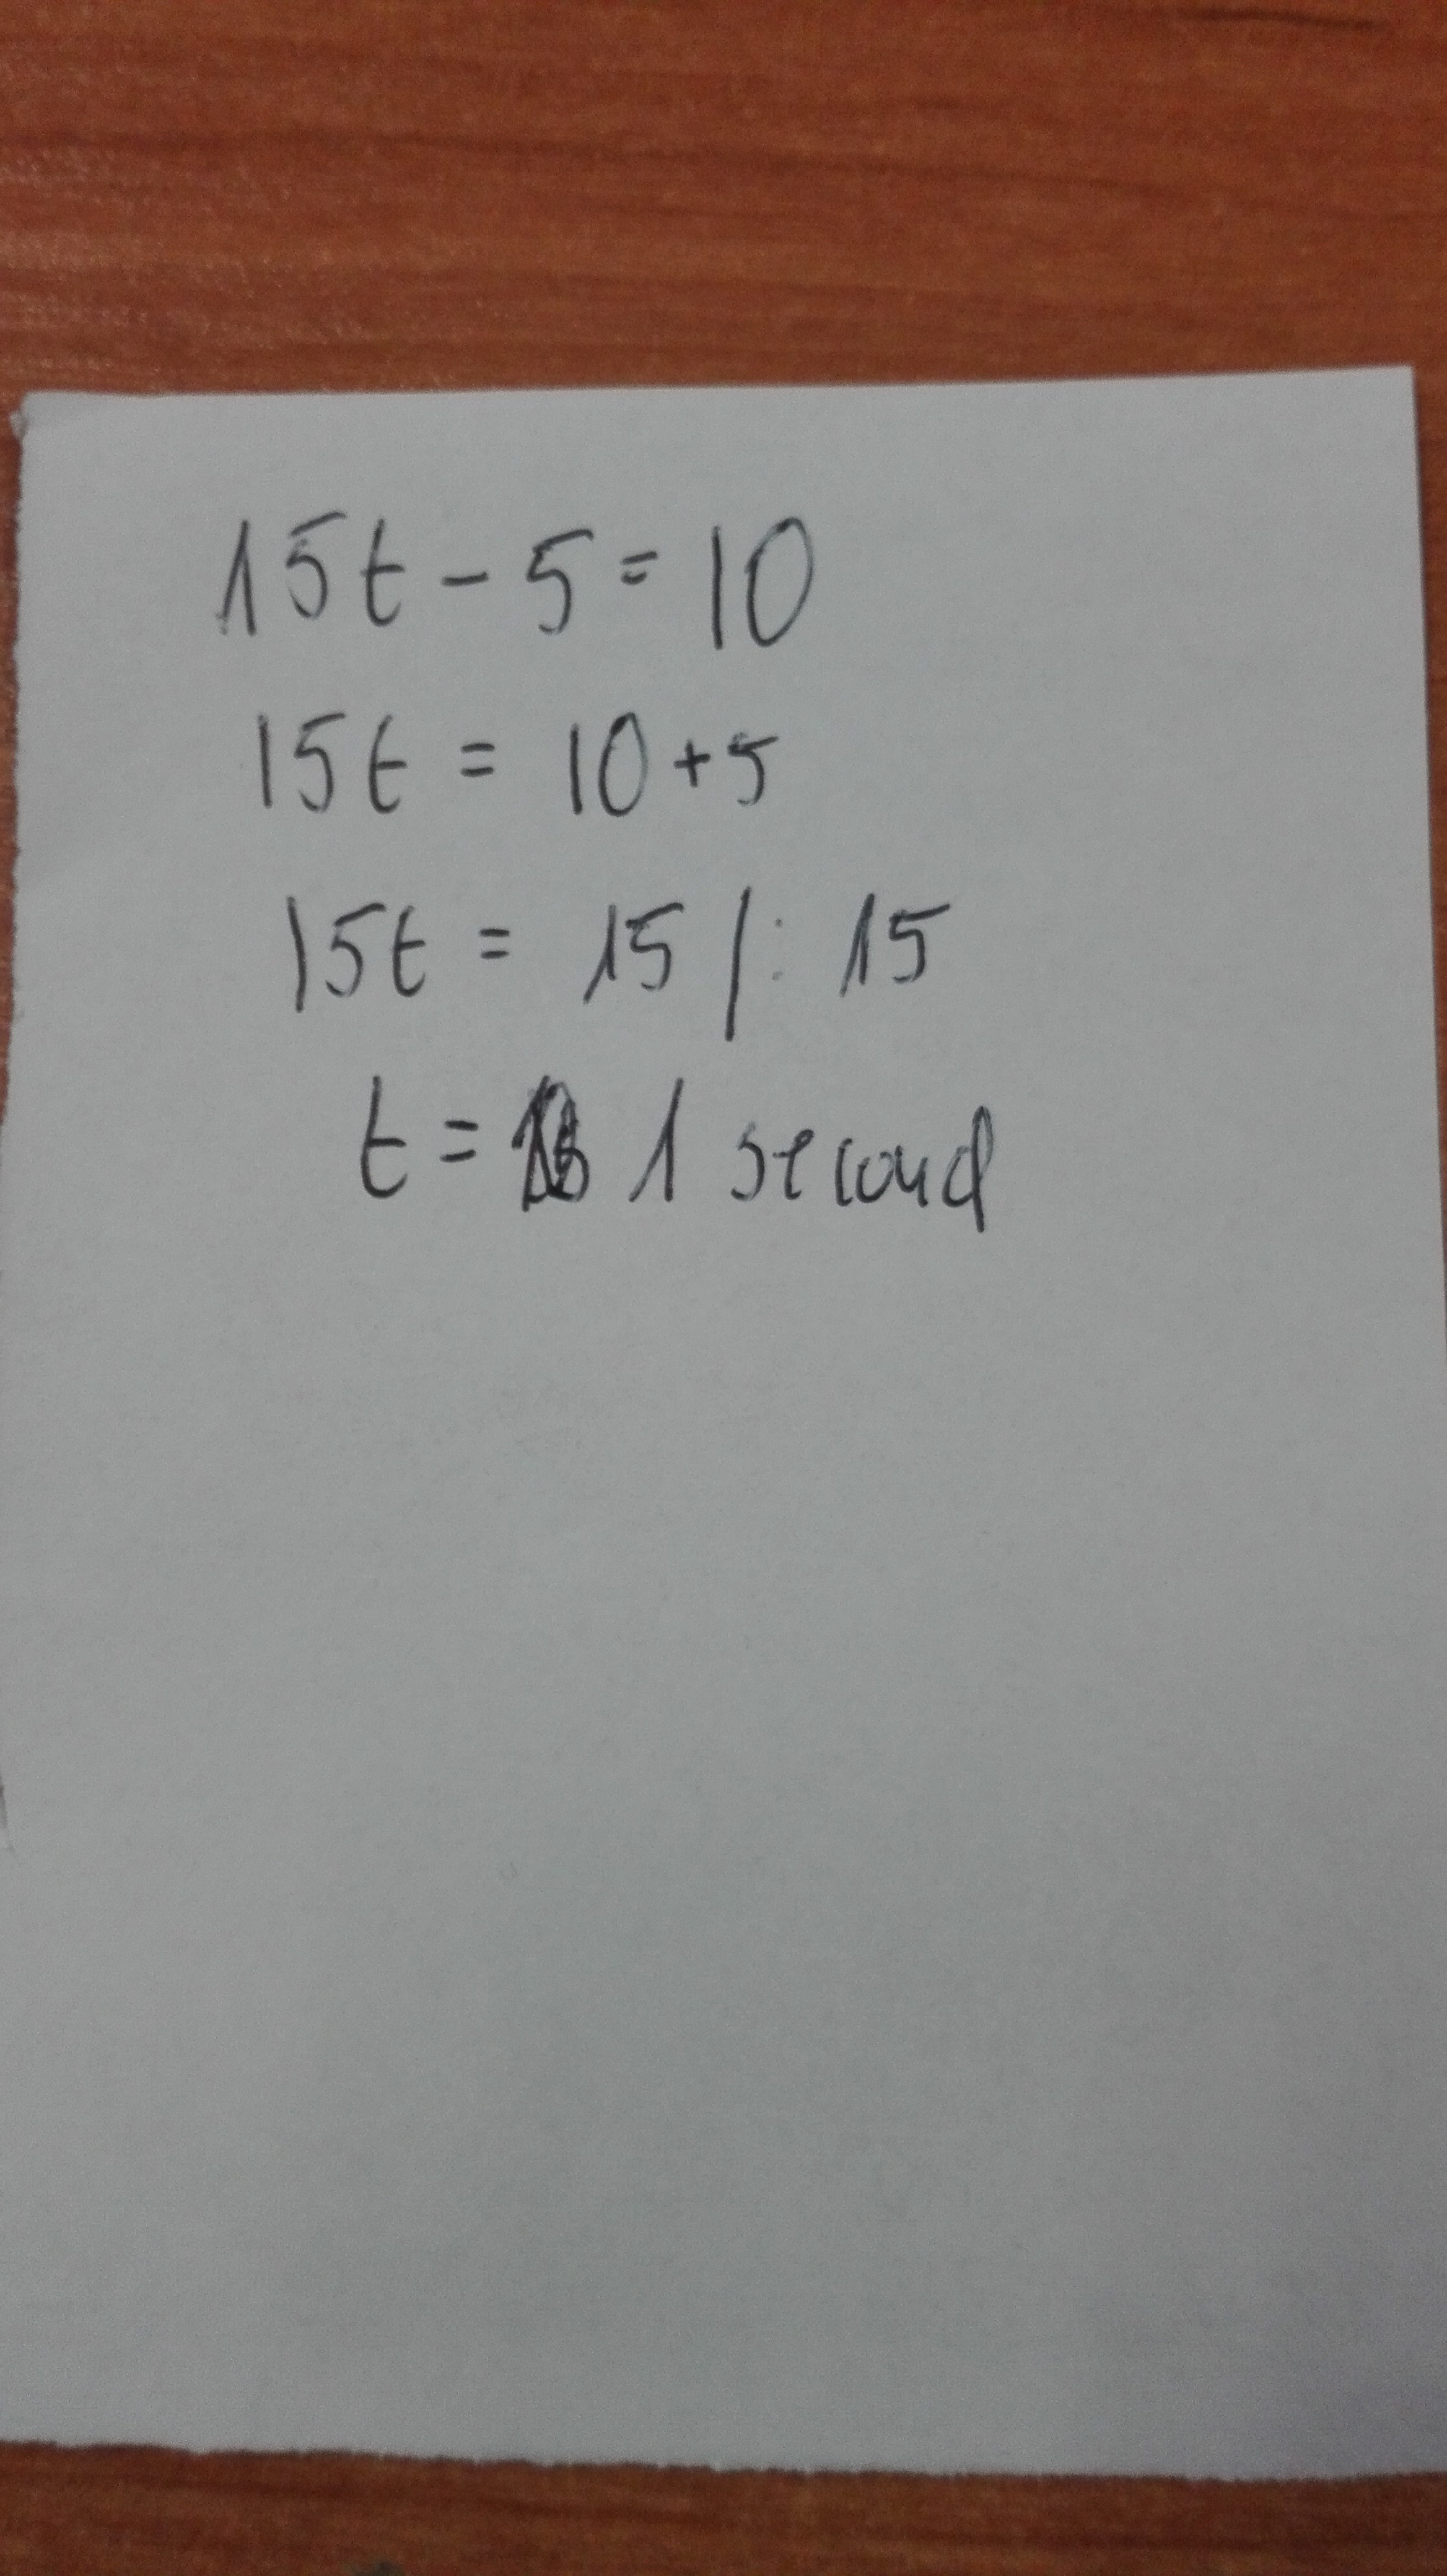 15t - 5 = 10
15t = 10 + 5
15t = 15 /: 15
t = 1 second